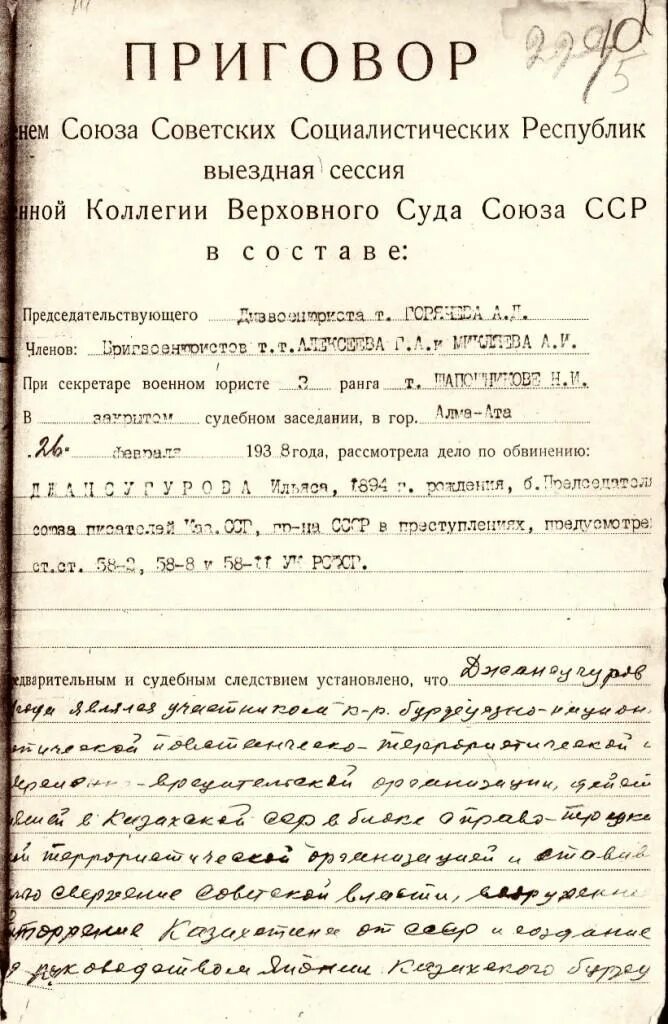 229
5
ПРИГОВОР
нем Союза Советских Социалистических Республик
выездная сессия
нной Коллегии Верховного Суда Союза ССР
в составе:
Председательствующего Диввоенюриста т. ГОРЯЧЕВА А.Д.
Членов: Бригвоенюристов т.т.АЛЕКСЕЕВА Г.А.и МИКЛЯЕВА А.И.
При секретаре военном юристе 3 ранга т. ШАПОШНИКОВЕ Н.И.
В закрытом судебном заседании, в гор. Алма-Ата
26 февраля 1938 года, рассмотрела дело по обвинению:
ДЖАНСУГУРОВА Ильяса, 1894 г. рождения, б.Председател
союза писателей Каз.ССР, гр-на СССР в преступлениях, предусмотре
ст.ст. 58-2, 58-8 и 58-11 УК РСФСР.
едварительным и судебным следствием установлено, что Джансугуров
года являлся участником к-р. буржуазно-национ
тической повстанческо-террористической и
-вредительской организации, дейст
в Казахской ССР в блоке с право-троцки
й террористической организацией и ставив
лью свержение советской власти, вооруженно
отторжение Казахстана от СССР и создание
руководством Японии Казахского буржу